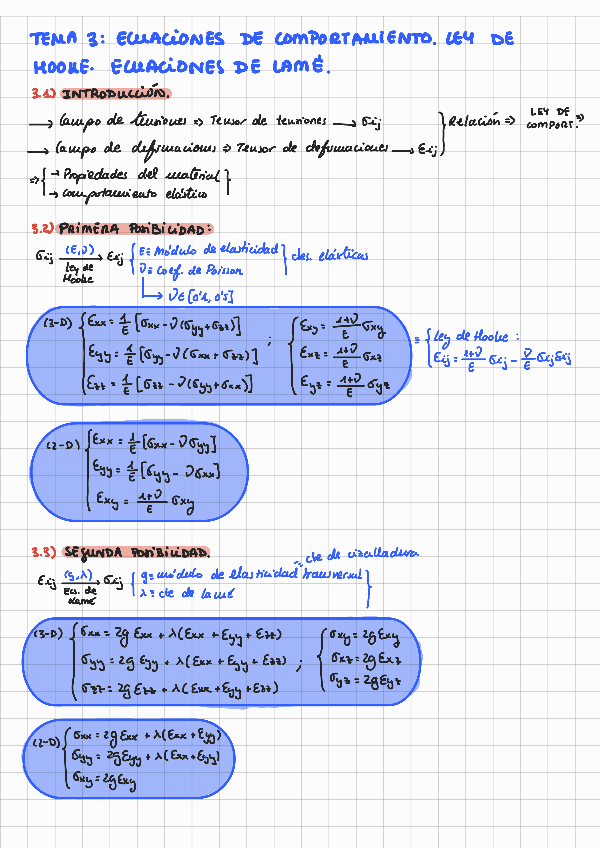 TEMA 3: ECUACIONES DE COMPORTAMIENTO. LEY DE
HOOKE. ECUACIONES DE LAMÉ.
3.1) INTRODUCCIÓN.
→ Campo de tensiones ⇒ Tensor de tensiones → σij
→ Campo de deformaciones ⇒ Tensor de deformaciones → εij } Relación ⇒ LEY DE COMPORT.
⇒ { → Propiedades del material
→ Comportamiento elástico }
3.2) PRIMERA POSIBILIDAD:
σij (E,ν) → εij { E ≡ Módulo de elasticidad
Ley de Hooke ν ≡ Coef. de Poisson } ctes. elásticas
↳ ν ∈ [0'1, 0'5]
(3-D) { εxx = 1/E [σxx - ν(σyy + σzz)] ; { εxy = (1+ν)/E σxy
εyy = 1/E [σyy - ν(σxx + σzz)] εxz = (1+ν)/E σxz
εzz = 1/E [σzz - ν(σyy + σxx)] εyz = (1+ν)/E σyz
≡ { Ley de Hooke:
εij = (1+ν)/E σij - ν/E σij δij
(2-D) { εxx = 1/E [σxx - νσyy]
εyy = 1/E [σyy - νσxx]
εxy = (1+ν)/E σxy
3.3) SEGUNDA POSIBILIDAD.
cte de cizalladura
εij (g,λ) → σij { g ≡ módulo de elasticidad transversal
Ecs. de Lamé λ ≡ cte de Lamé }
(3-D) { σxx = 2g εxx + λ(εxx + εyy + εzz)
σyy = 2g εyy + λ(εxx + εyy + εzz) ;
σzz = 2g εzz + λ(εxx + εyy + εzz)
{ σxy = 2g εxy
σxz = 2g εxz
σyz = 2g εyz
(2-D) { σxx = 2g εxx + λ(εxx + εyy)
σyy = 2g εyy + λ(εxx + εyy)
σxy = 2g εxy